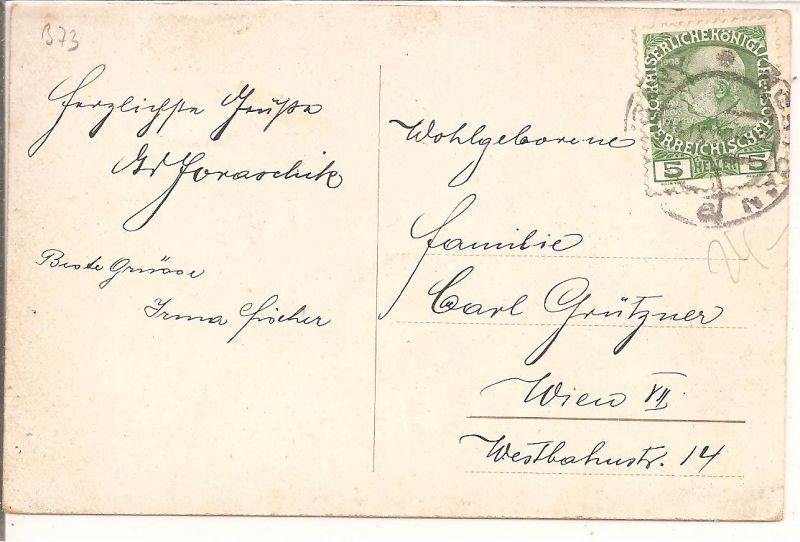 B73
Herzlichste Grüße
Joraschik
Beste Grüsse
Irma Fischer
Wohlgeborene
Familie
Carl Grützner
Wien VII
Westbahnstr. 14
KAISERLICHE KÖNIGLICHE
ÖSTERREICHISCHE
5 HELLER 5